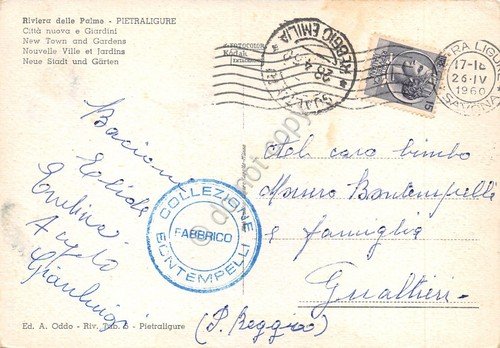 Riviera delle Palme - PIETRALIGURE
Città nuova e Giardini
New Town and Gardens
Nouvelle Ville et Jardins
Neue Stadt und Gärten
FOTOCOLOR
Kodak
EKTACHROME
REGGIO EMILIA
17-18
26·IV
1960
SAVONA
15
Bacioni
Evelina
Angelo
Gianluigi
COLLEZIONE
FABBRICO
BONTEMPELLI
Al caro bimbo
Mauro Bontempelli
e famiglia
Gualtieri
(P. Reggio)
Ed. A. Oddo - Riv. Tab. 6 - Pietraligure
do not copy